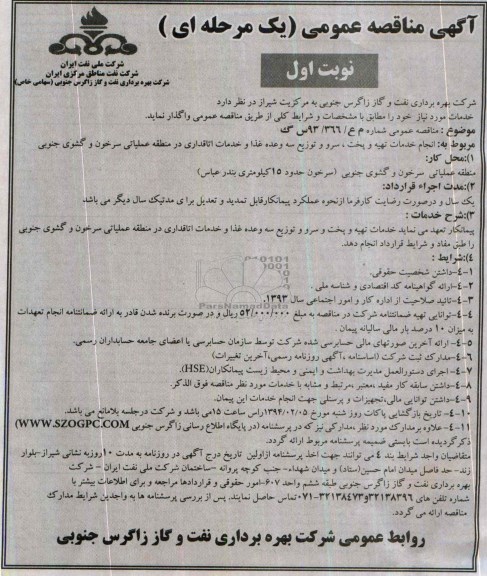 آگهی مناقصه عمومی (یک مرحله ای)
شرکت ملی نفت ایران
شرکت نفت مناطق مرکزی ایران
شرکت بهره برداری نفت و گاز زاگرس جنوبی (سهامی خاص)
نوبت اول
شرکت بهره برداری نفت و گاز زاگرس جنوبی به مرکزیت شیراز در نظر دارد
خدمات مورد نیاز خود را مطابق با مشخصات و شرایط کلی از طریق مناقصه عمومی واگذار نماید.
موضوع : مناقصه عمومی شماره م ع/ ۳۶۶/ ۹۳س گ
مربوط به: انجام خدمات تهیه و پخت ، سرو و توزیع سه وعده غذا و خدمات اتاقداری در منطقه عملیاتی سرخون و گشوی جنوبی
۱:محل کار:
منطقه عملیاتی سرخون و گشوی جنوبی (سرخون حدود ۱۵کیلومتری بندر عباس)
۲:مدت اجراء قرارداد:
یک سال و درصورت رضایت کارفرما ازنحوه عملکرد پیمانکارقابل تمدید و تعدیل برا ی مدتیک سال دیگر می باشد.
۳:شرح خدمات :
پیمانکار تعهد می نماید خدمات تهیه و پخت و سرو و توزیع سه وعده غذا و خدمات اتاقداری در منطقه عملیاتی سرخون و گشوی جنوبی
را طبق مفاد و شرایط قرارداد انجام دهد.
۴:شرایط :
۴-۱-داشتن شخصیت حقوقی.
۴-۲-ارائه گواهینامه کد اقتصادی و شناسه ملی .
۴-۳-تائید صلاحیت از اداره کار و امور اجتماعی سال ۱۳۹۳.
۴-۴-توانایی تهیه ضمانتنامه شرکت در مناقصه به مبلغ ۵۲/۰۰۰/۰۰۰ ریال و در صورت برنده شدن قادر به ارائه ضمانتنامه انجام تعهدات
به میزان ۱۰ درصد بار مالی سالیانه پیمان .
۴-۵- ارائه آخرین صورتهای مالی حسابرسی شده شرکت توسط سازمان حسابرسی یا اعضای جامعه حسابداران رسمی.
۴-۶-مدارک ثبت شرکت (اساسنامه ،آگهی روزنامه رسمی،آخرین تغییرات)
۴-۷- اجرای دستورالعمل مدیریت بهداشت و ایمنی و محیط زیست پیمانکاران(HSE).
۴-۸-داشتن سابقه کار مفید ،معتبر ،مرتبط و مشابه با خدمات مورد نظر مناقصه فوق الذکر.
۴-۹- داشتن توانایی مالی،تجهیزات و پرسنلی جهت انجام خدمات این پیمان.
۴-۱۰- تاریخ بازگشایی پاکات روز شنبه مورخ ۱۳۹۴/۰۲/۰۵راس ساعت ۱۵می باشد و شرکت درجلسه بلامانع می باشد.
۴-۱۱-علاوه برمدارک مورد نظر مدارکی نیز که در پرسشنامه (در پایگاه اطلاع رسانی زاگرس جنوبی WWW.SZOGPC.COM)
ذکرگردیده است بایستی ضمیمه پرسشنامه مربوط ارائه گردد.
متقاضیان واجد شرایط بند ۴ می توانند جهت اخذ پرسشنامه ازاولین تاریخ درج آگهی در روزنامه به مدت ۱۰روزبه نشانی شیراز-بلوار
زند- حد فاصل میدان امام حسین(ستاد) و میدان شهداء- جنب کوچه پروانه -ساختمان شرکت ملی نفت ایران - شرکت
بهره برداری نفت و گاز زاگرس جنوبی طبقه ششم واحد ۶۰۷-امور حقوقی و قراردادها مراجعه و برای اطلاعات بیشتر با
شماره تلفن های ۳۲۱۳۸۳۹۶و۳۲۱۳۸۴۷۳-۰۷۱تماس حاصل نمایند. پس از بررسی پرسشنامه ها به واجدین شرایط مدارک
مناقصه ارائه می گردد.
روابط عمومی شرکت بهره برداری نفت و گاز زاگرس جنوبی
ParsNamadData